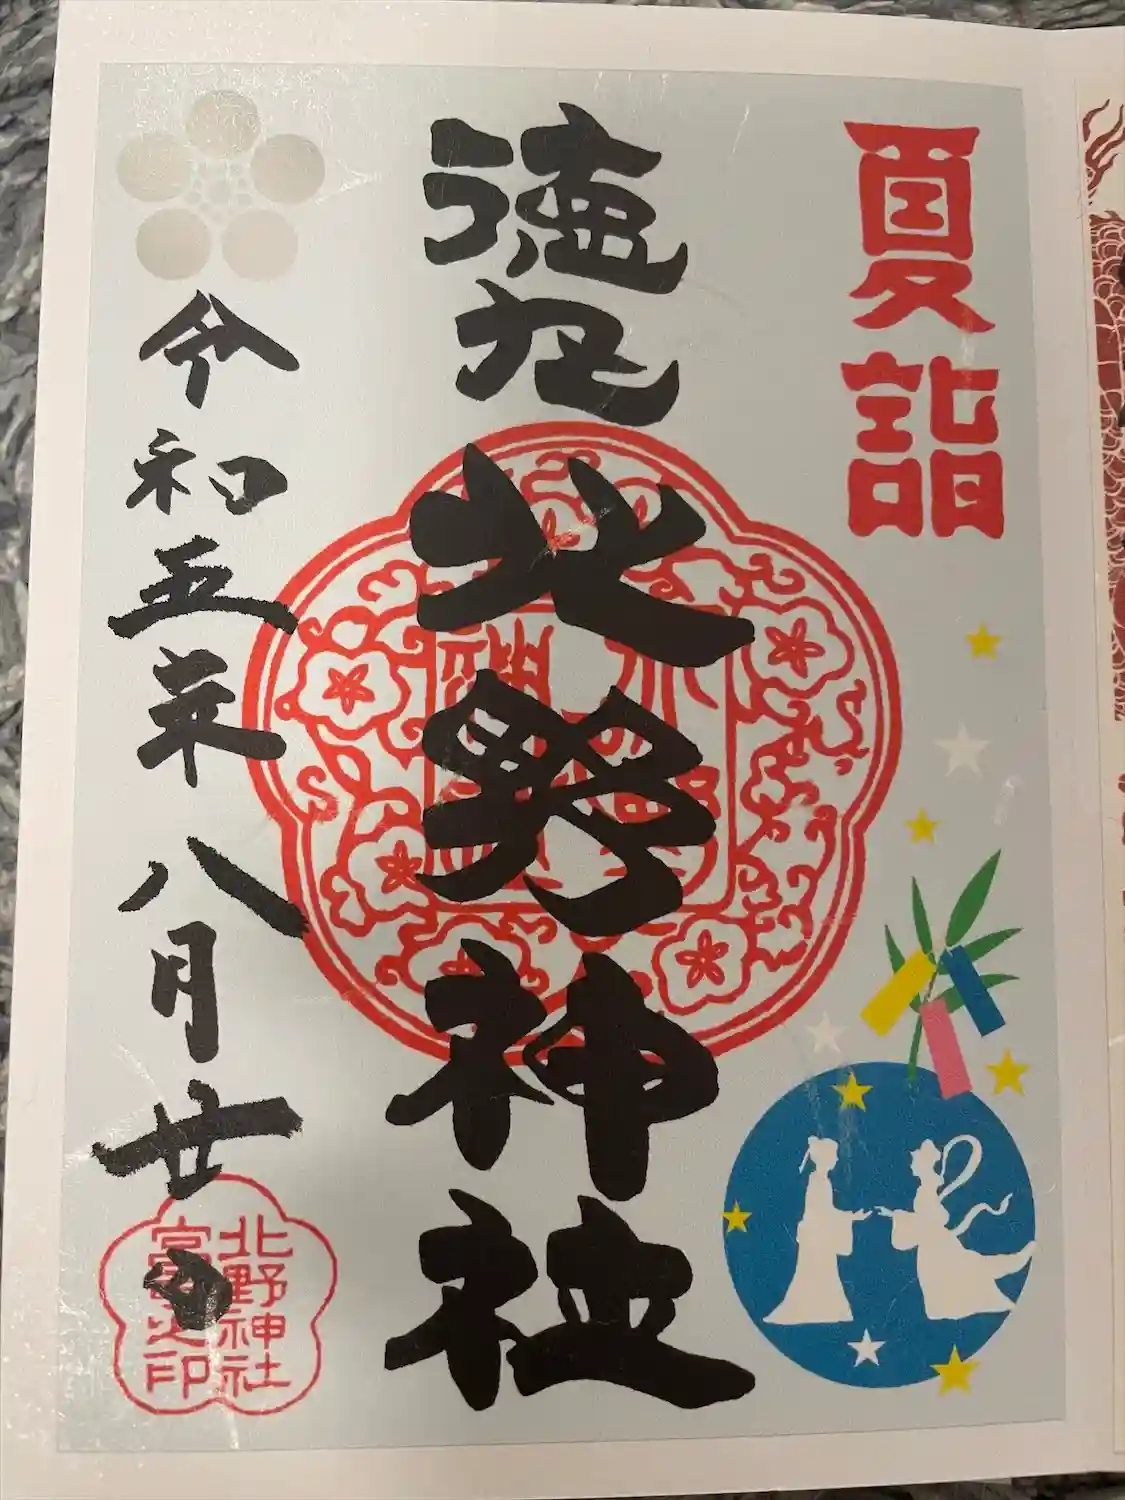 夏詣
徳丸
北野神社
令和五年
八月廿日
北野神社
宮司之印